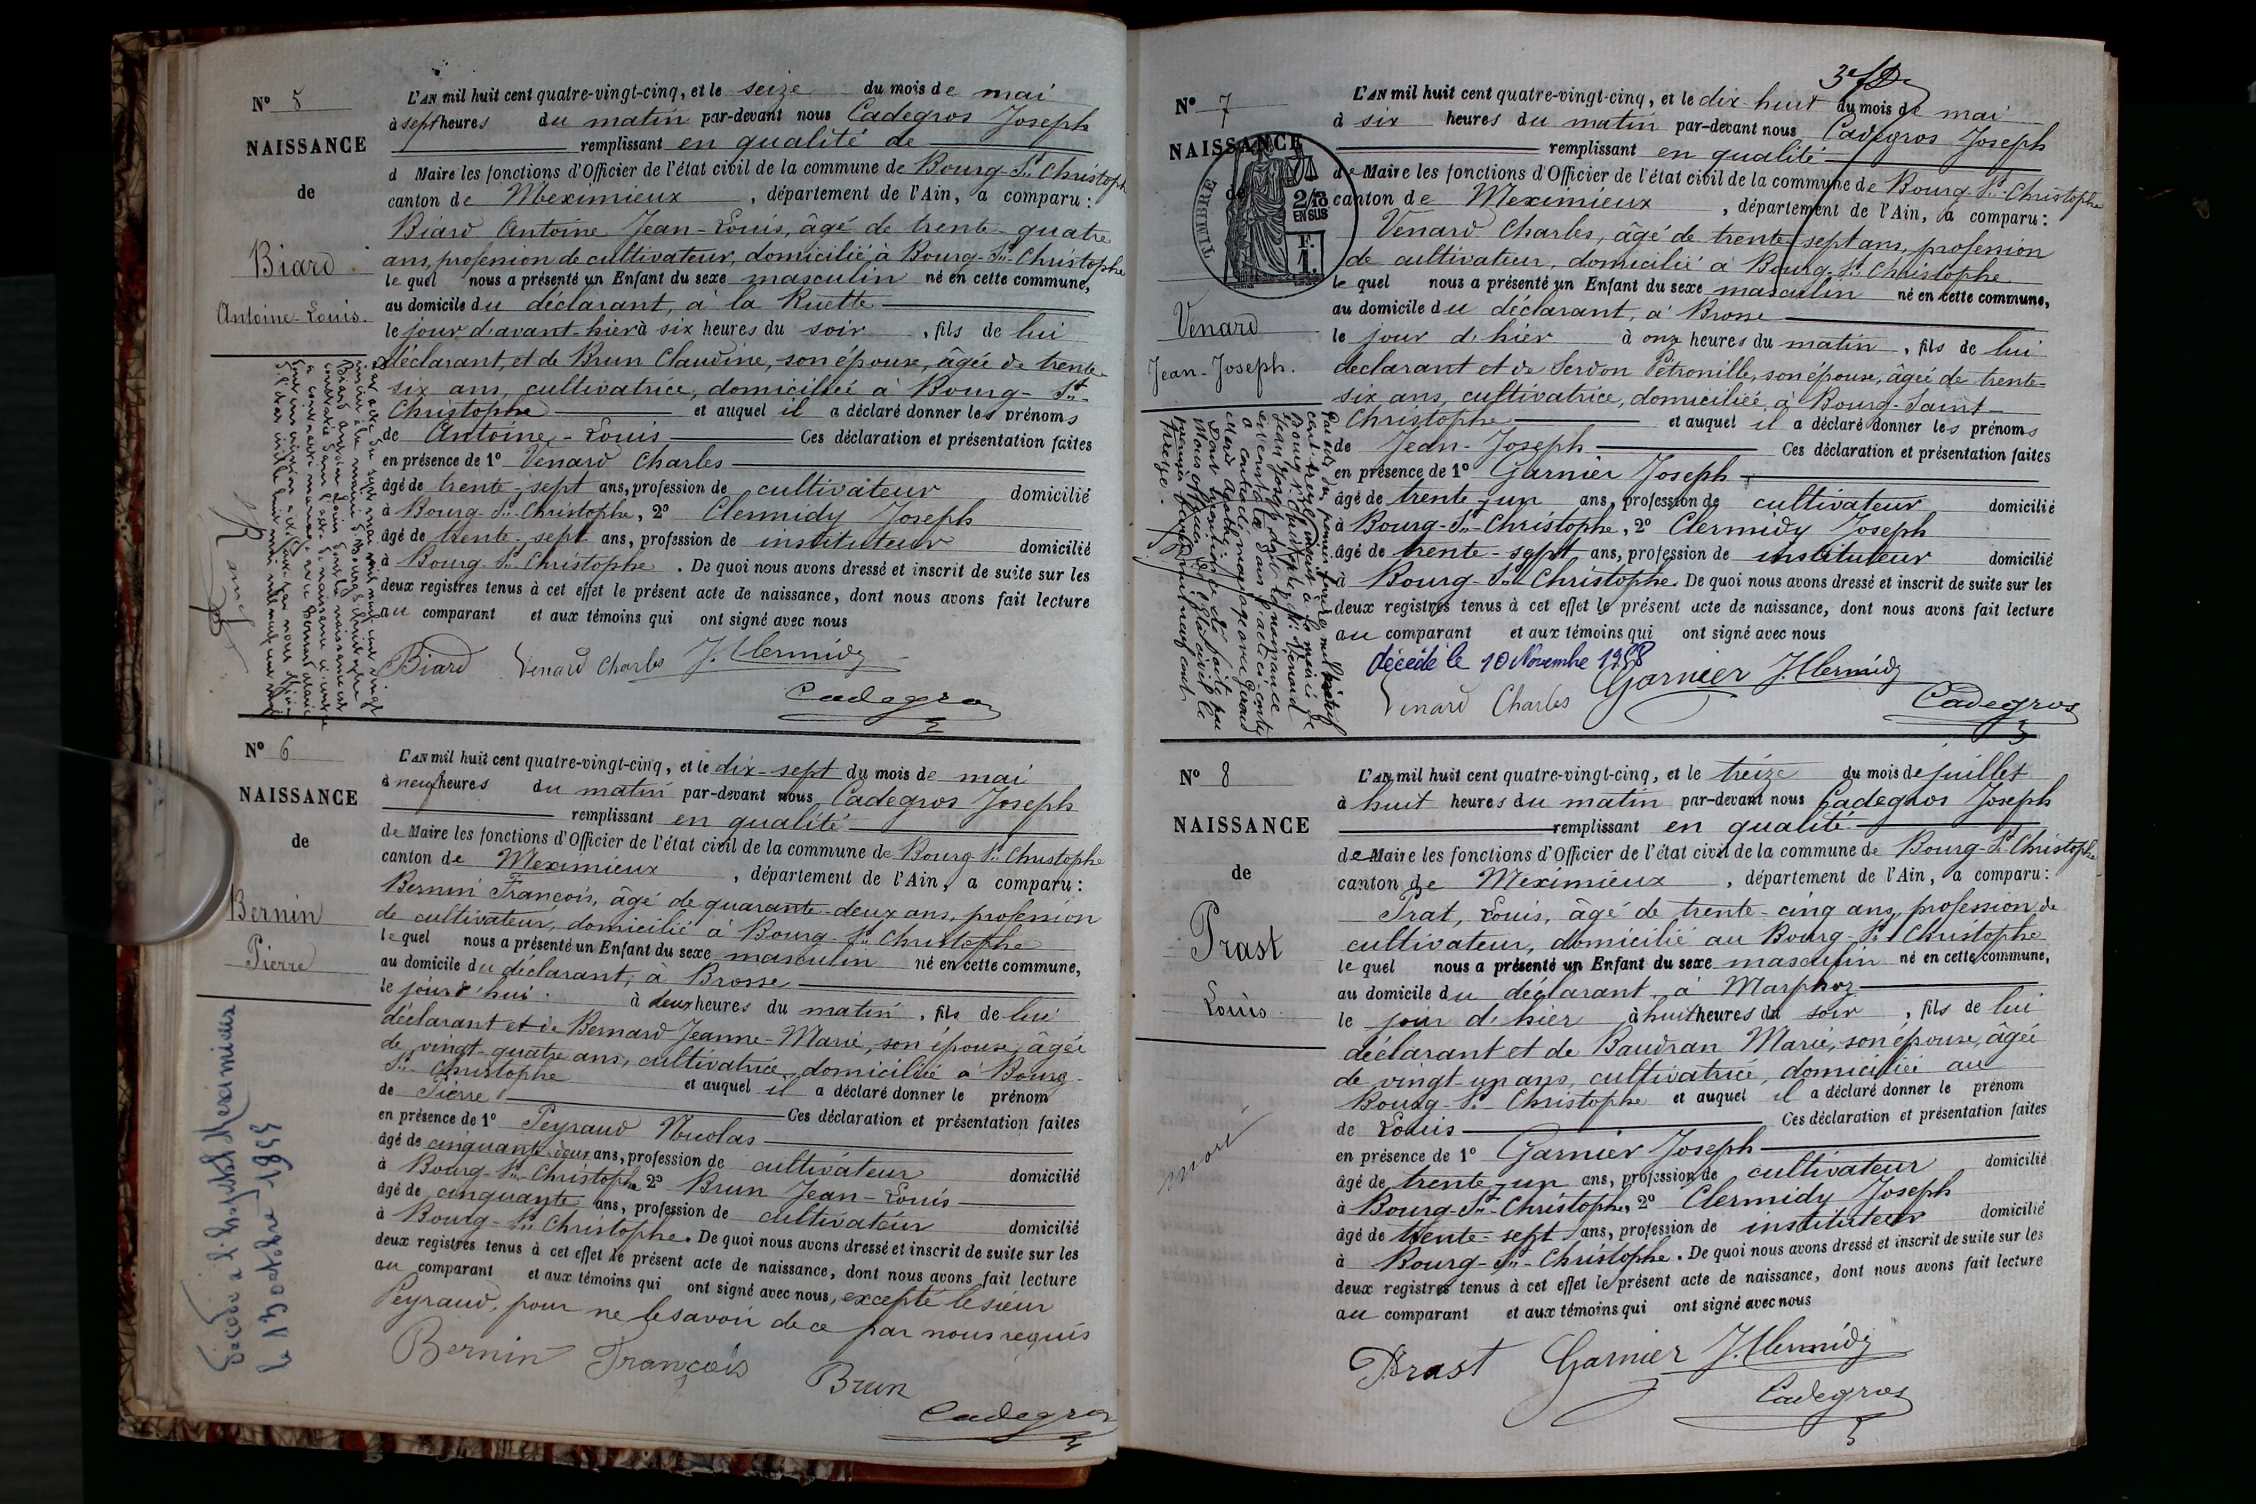 N° 5
NAISSANCE
de
Biard
Antoine-Louis.
L'AN mil huit cent quatre-vingt-cinq, et le seize du mois de mai
à sept heures du matin par-devant nous Cadegros Joseph
remplissant en qualité de
d Maire les fonctions d'Officier de l'état civil de la commune de Bourg-St-Christophe
canton de Meximieux, département de l'Ain, a comparu :
Biard Antoine Jean-Louis, âgé de trente-quatre
ans, profession de cultivateur, domicilié à Bourg-St-Christophe
le quel nous a présenté un Enfant du sexe masculin né en cette commune,
au domicile du déclarant, à la Ruette
le jour d'avant-hier à six heures du soir, fils de lui
déclarant, et de Brun Claudine, son épouse, âgée de trente-
six ans, cultivatrice, domiciliée à Bourg-St-
Christophe et auquel il a déclaré donner les prénoms
de Antoine-Louis Ces déclaration et présentation faites
en présence de 1° Venard Charles
âgé de trente-sept ans, profession de cultivateur domicilié
à Bourg-St-Christophe, 2° Clermidy Joseph
âgé de trente-sept ans, profession de instituteur domicilié
à Bourg-St-Christophe. De quoi nous avons dressé et inscrit de suite sur les
deux registres tenus à cet effet le présent acte de naissance, dont nous avons fait lecture
au comparant et aux témoins qui ont signé avec nous
Biard Venard Charles J. Clermidy
Cadegros
N° 6
NAISSANCE
de
Bernin
Pierre
Décédé à l'hopital Meximieux
le 13 octobre 1955
L'AN mil huit cent quatre-vingt-cinq, et le dix-sept du mois de mai
à neuf heures du matin par-devant nous Cadegros Joseph
remplissant en qualité
de Maire les fonctions d'Officier de l'état civil de la commune de Bourg-St-Christophe
canton de Meximieux, département de l'Ain, a comparu :
Bernin François, âgé de quarante-deux ans, profession
de cultivateur, domicilié à Bourg-St-Christophe
le quel nous a présenté un Enfant du sexe masculin né en cette commune,
au domicile du déclarant, à Brosse
le jour d'hui à deux heures du matin, fils de lui
déclarant et de Bernard Jeanne-Marie, son épouse, âgée
de vingt-quatre ans, cultivatrice, domiciliée à Bourg-
St-Christophe et auquel il a déclaré donner le prénom
de Pierre Ces déclaration et présentation faites
en présence de 1° Peyraud Nicolas
âgé de cinquante-deux ans, profession de cultivateur domicilié
à Bourg-St-Christophe 2° Brun Jean-Louis
âgé de cinquante ans, profession de cultivateur domicilié
à Bourg-St-Christophe. De quoi nous avons dressé et inscrit de suite sur les
deux registres tenus à cet effet le présent acte de naissance, dont nous avons fait lecture
au comparant et aux témoins qui ont signé avec nous, excepté le sieur
Peyraud, pour ne le savoir de ce par nous requis
Bernin François Brun
Cadegros
N° 7
NAISSANCE
de
TIMBRE
2/10
EN SUS
F.
1.
Venard
Jean-Joseph.
L'AN mil huit cent quatre-vingt-cinq, et le dix-huit du mois de mai
à six heures du matin par-devant nous Cadegros Joseph
remplissant en qualité
de Maire les fonctions d'Officier de l'état civil de la commune de Bourg-St-Christophe
canton de Meximieux, département de l'Ain, a comparu :
Venard Charles, âgé de trente-sept ans, profession
de cultivateur, domicilié à Bourg-St-Christophe
le quel nous a présenté un Enfant du sexe masculin né en cette commune,
au domicile du déclarant, à Brosse
le jour d'hier à onz heures du matin, fils de lui
déclarant et de Serdon Pétronille, son épouse, âgée de trente-
six ans, cultivatrice, domiciliée, à Bourg-Saint-
Christophe et auquel il a déclaré donner les prénoms
de Jean-Joseph Ces déclaration et présentation faites
en présence de 1° Garnier Joseph
âgé de trente-un ans, profession de cultivateur domicilié
à Bourg-St-Christophe, 2° Clermidy Joseph
âgé de trente-sept ans, profession de instituteur domicilié
à Bourg-St-Christophe. De quoi nous avons dressé et inscrit de suite sur les
deux registres tenus à cet effet le présent acte de naissance, dont nous avons fait lecture
au comparant et aux témoins qui ont signé avec nous
décédé le 10 Novembre 1958
Venard Charles Garnier J. Clermidy
Cadegros
N° 8
NAISSANCE
de
Prast
Louis
mort
L'AN mil huit cent quatre-vingt-cinq, et le treize du mois de juillet
à huit heures du matin par-devant nous Cadegros Joseph
remplissant en qualité
de Maire les fonctions d'Officier de l'état civil de la commune de Bourg-St-Christophe
canton de Meximieux, département de l'Ain, a comparu :
Prat, Louis, âgé de trente-cinq ans, profession de
cultivateur, domicilié au Bourg-St-Christophe
le quel nous a présenté un Enfant du sexe masculin né en cette commune,
au domicile du déclarant, à Marphoz
le jour d'hier à huit heures du soir, fils de lui
déclarant et de Baudran Marie, son épouse, âgée
de vingt-un ans, cultivatrice, domiciliée au
Bourg-St-Christophe et auquel il a déclaré donner le prénom
de Louis Ces déclaration et présentation faites
en présence de 1° Garnier Joseph
âgé de trente-un ans, profession de cultivateur domicilié
à Bourg-St-Christophe, 2° Clermidy Joseph
âgé de trente-sept ans, profession de instituteur domicilié
à Bourg-St-Christophe. De quoi nous avons dressé et inscrit de suite sur les
deux registres tenus à cet effet le présent acte de naissance, dont nous avons fait lecture
au comparant et aux témoins qui ont signé avec nous
Prast Garnier J. Clermidy
Cadegros